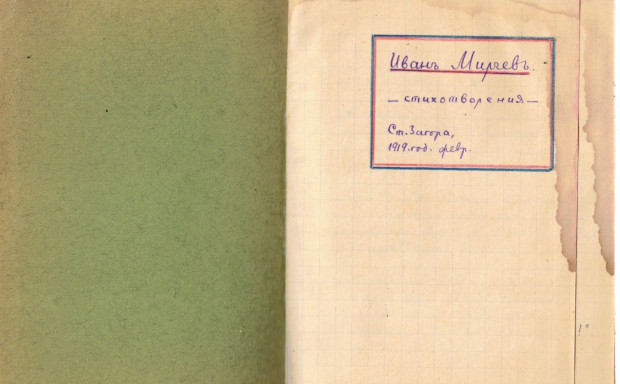 Иванъ Мирчевъ.
— стихотворения —
Ст. Загора,
1919. год. февр.